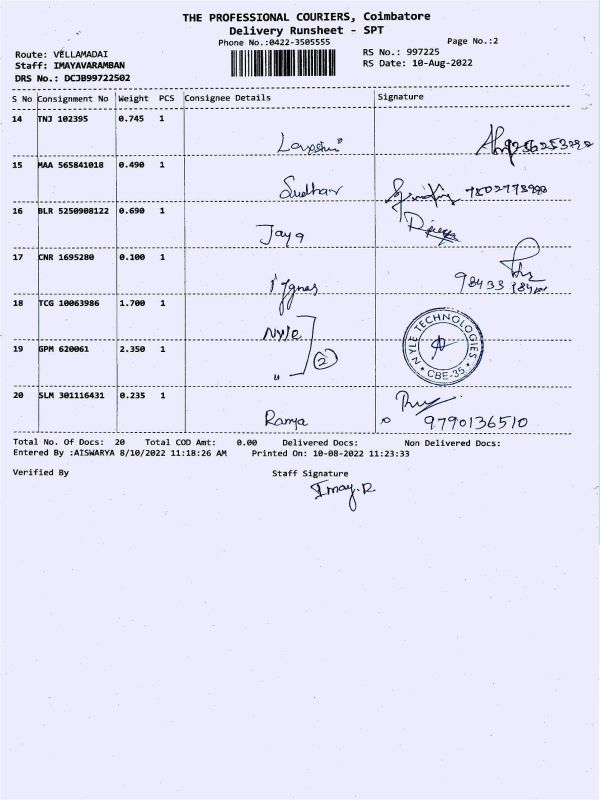 THE PROFESSIONAL COURIERS, Coimbatore
Delivery Runsheet - SPT
Phone No.:0422-3505555
Page No.:2
Route: VELLAMADAI
RS No.: 997225
Staff: IMAYAVARAMBAN
RS Date: 10-Aug-2022
DRS No.: DCJB99722502
S No Consignment No Weight PCS Consignee Details Signature
14 TNJ 102395 0.745 1
15 MAA 565841018 0.490 1
Sudhar
16 BLR 5250908122 0.690 1
Jaya
17 CNR 1695280 0.100 1
18 TCG 10063986 1.700 1
Nyle
NYLE TECHNOLOGIES
CBE-35
19 GPM 620061 2.350 1
" 2
20 SLM 301116431 0.235 1
Ramya 9790136510
Total No. Of Docs: 20 Total COD Amt: 0.00 Delivered Docs: Non Delivered Docs:
Entered By :AISWARYA 8/10/2022 11:18:26 AM Printed On: 10-08-2022 11:23:33
Verified By Staff Signature
Imay.R